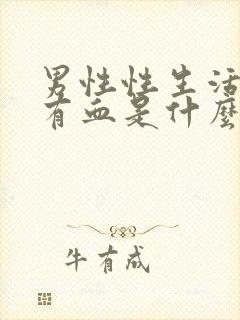 男性性生活
有血是什麼
牛有成